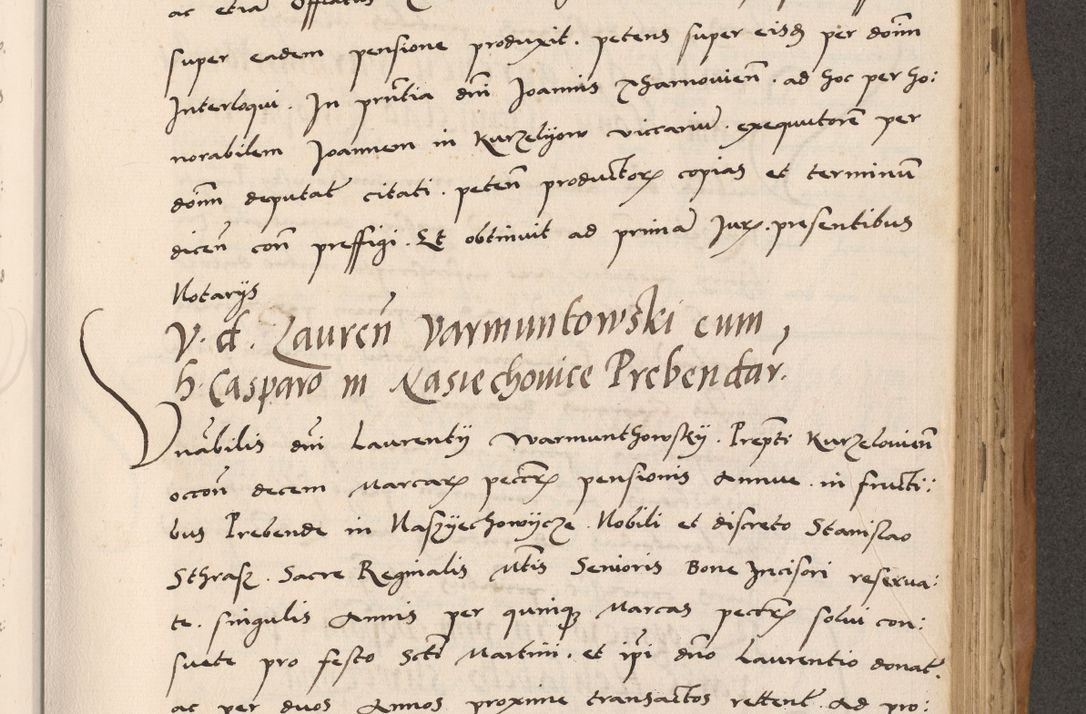 ac etiā Officialis
super eadem pensione produxit . petens super eisdē per doīm
Interloqui . In pntia dni Joannis Tharnovien̄ . ad hoc per ho:
norabilem Joannem in Kurzelyow viccariū . exequutorē per
doīm deputat̄ citati . peten̄ productorꝝ copias et terminū
dicen̄ con̄ preffigi . Et obtinuit ad primā Jurꝝ . presentibus
Notarijs
V . d . Lauren̄ Varmuntowski cum
h . Casparo in Nasiechovice Prebendar̄ .
Vnābilis dni Laurentij Warmunthowsky . Prepti Kurzelovien̄
occon̄ decem Marcarꝝ peccrꝝ pensionis Annue . in fructi:
bus Prebende in Naszyechowycze . Nobili et discreto Stanislao
Sthrasz . Sacre Reginalis Mtis Senioris Bone Incisori reserva:
te . singulis Annis per quinqꝫ Marcas peccrꝝ solui con:
suete pro festo Scti Martini . et ipi dno Laurentio donat̄
ac per duos Annos proxime transactos retent̄ . Ad pro: